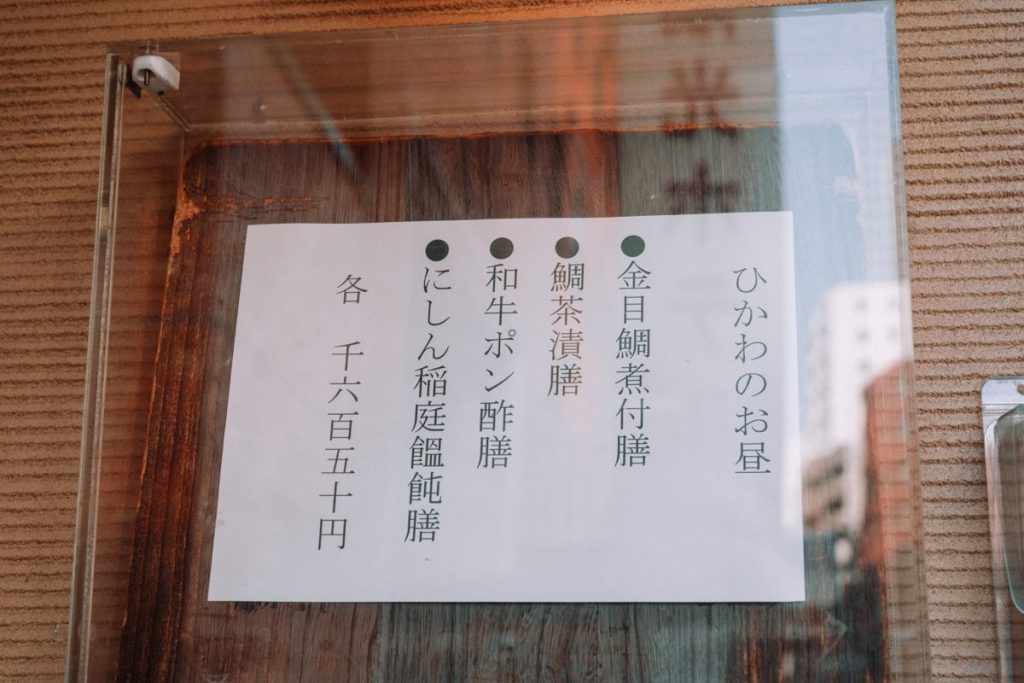 ひかわのお昼
●金目鯛煮付膳
●鯛茶漬膳
●和牛ポン酢膳
●にしん稲庭饂飩膳
各 千六百五十円